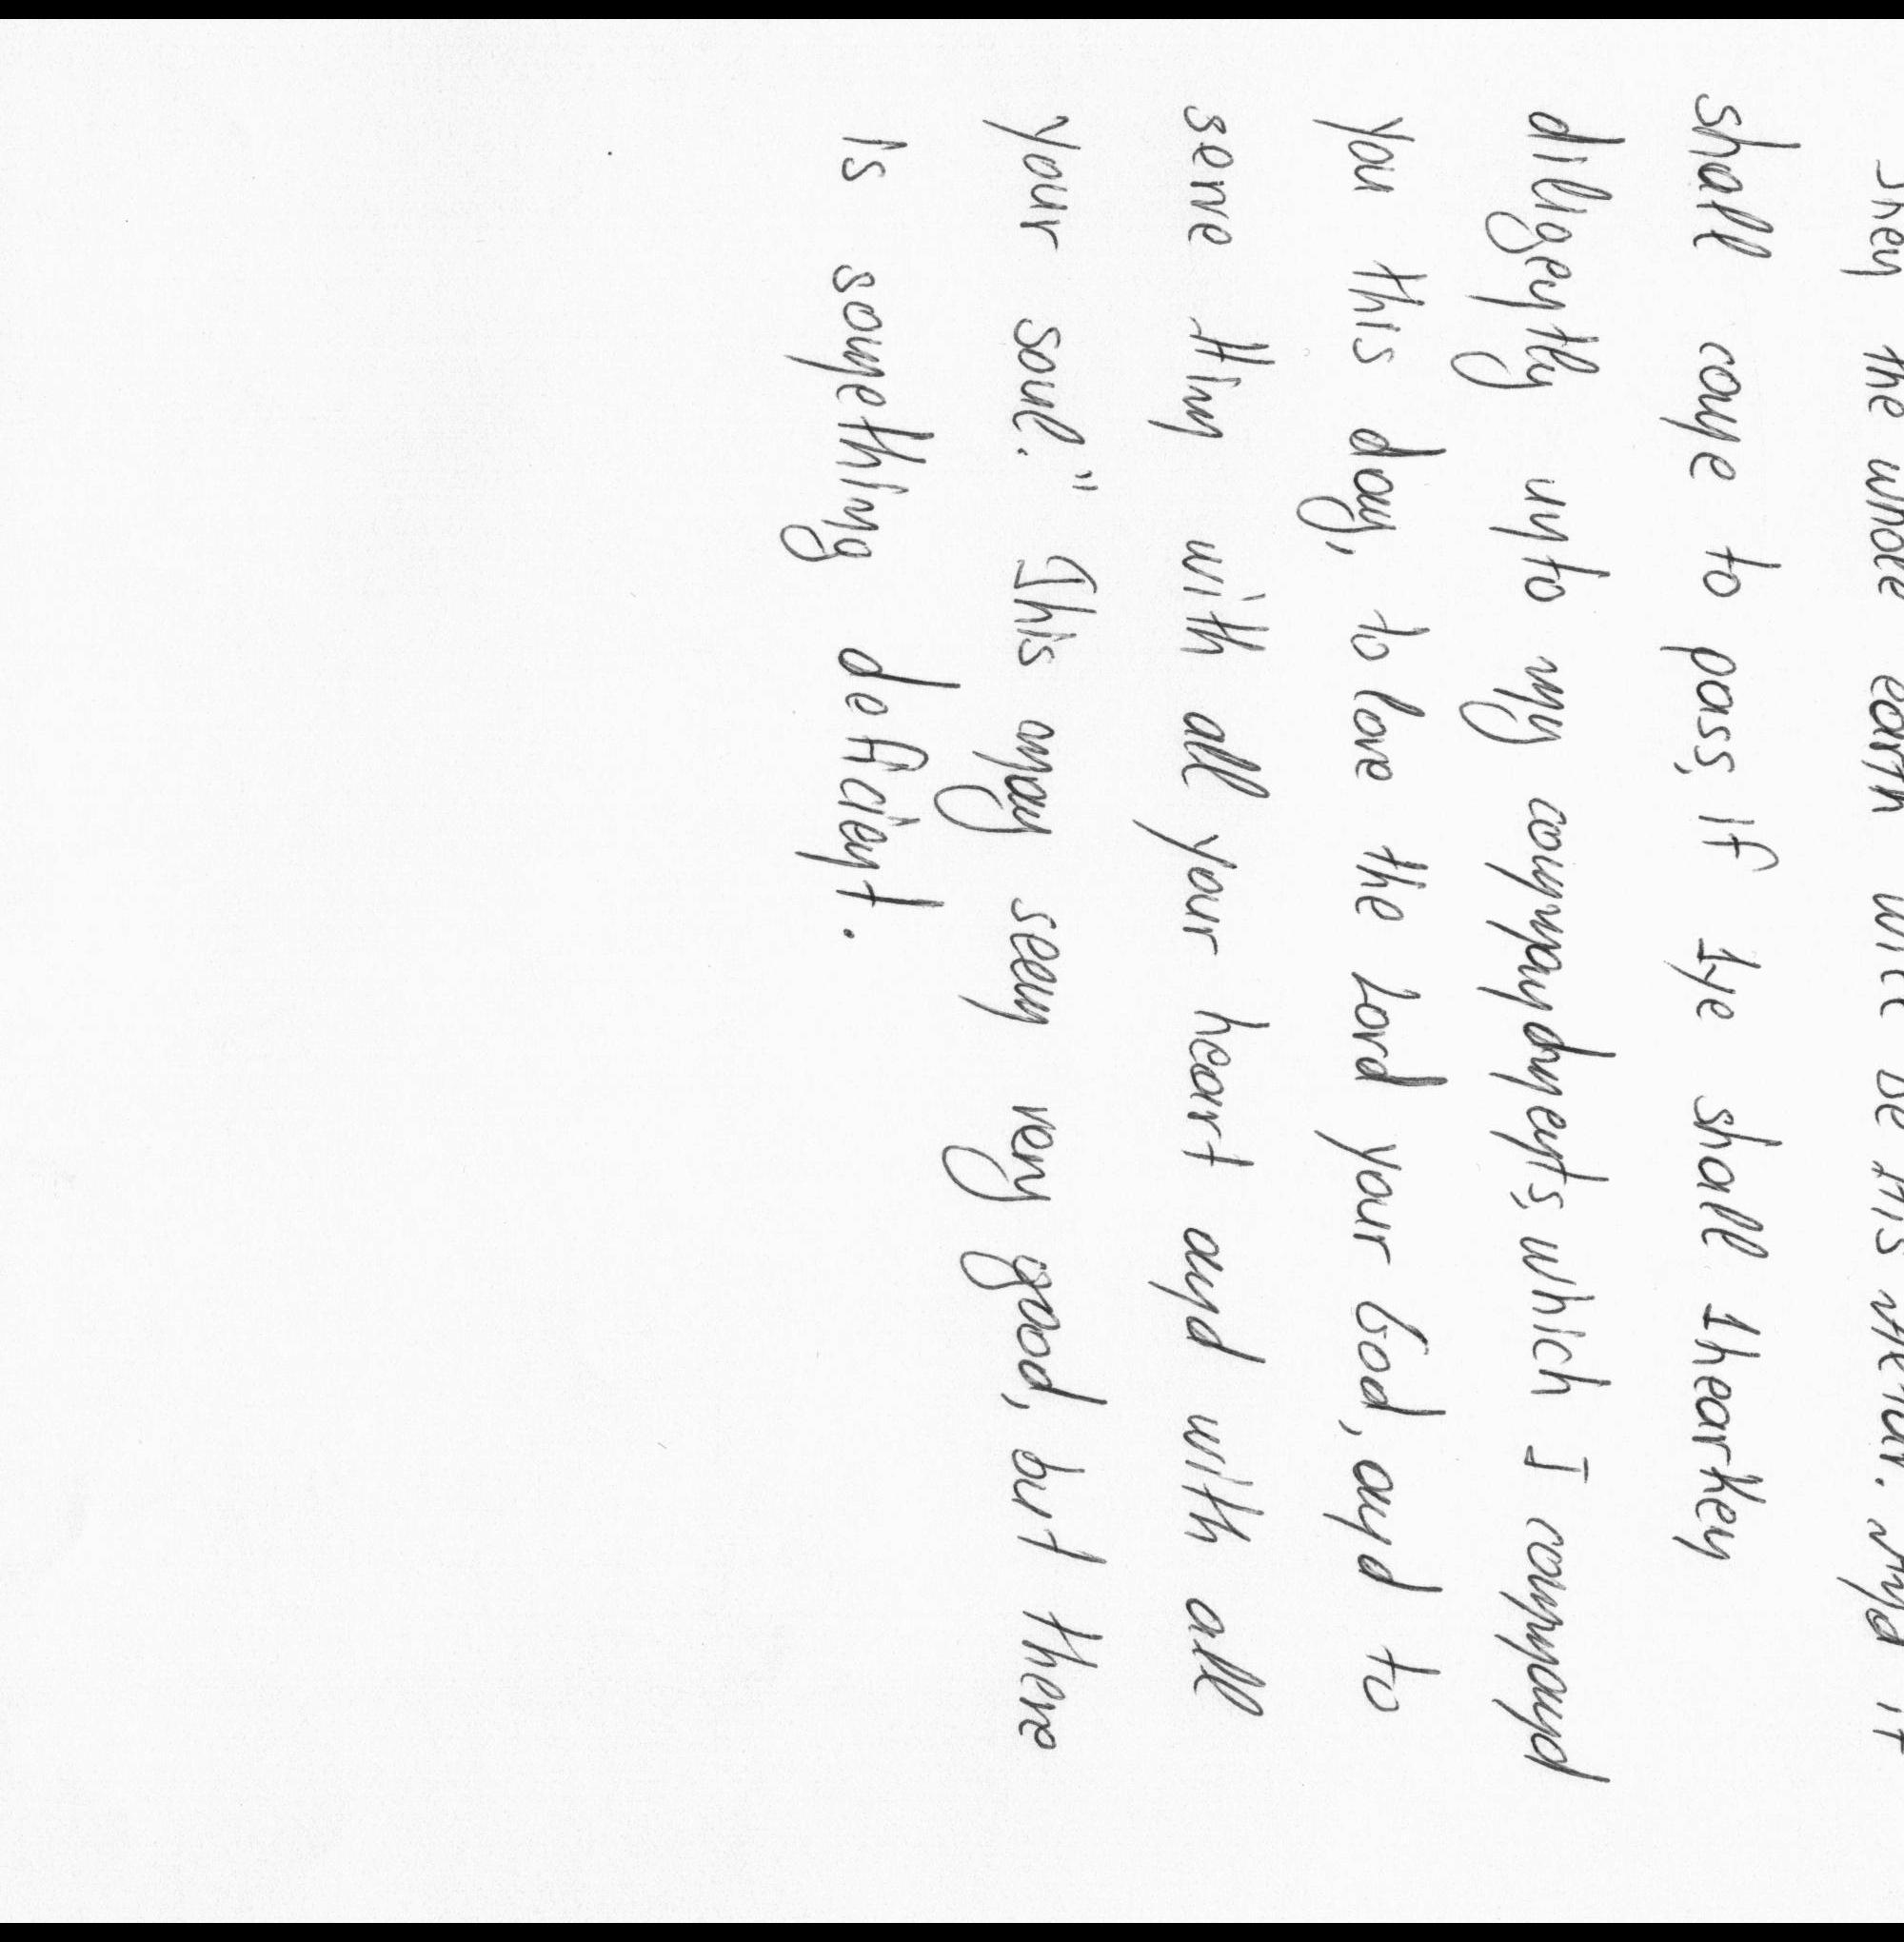 then the whole earth will be his altar. And it
shall come to pass, if ye shall hearken
diligently unto my commandments, which I command
you this day, to love the Lord your God, and to
serve Him with all your heart and with all
your soul." This may seem very good, but there
is something deficient.